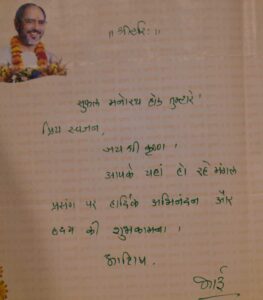 ॥ श्रीहरिः ॥
सुफल मनोरथ होहुँ तुम्हारे!
प्रिय स्वजन,
जय श्री कृष्ण!
आपके यहां हो रहे मंगल
प्रसंग पर हार्दिक अभिनंदन और
की शुभकामना!
आशिष.
भाई